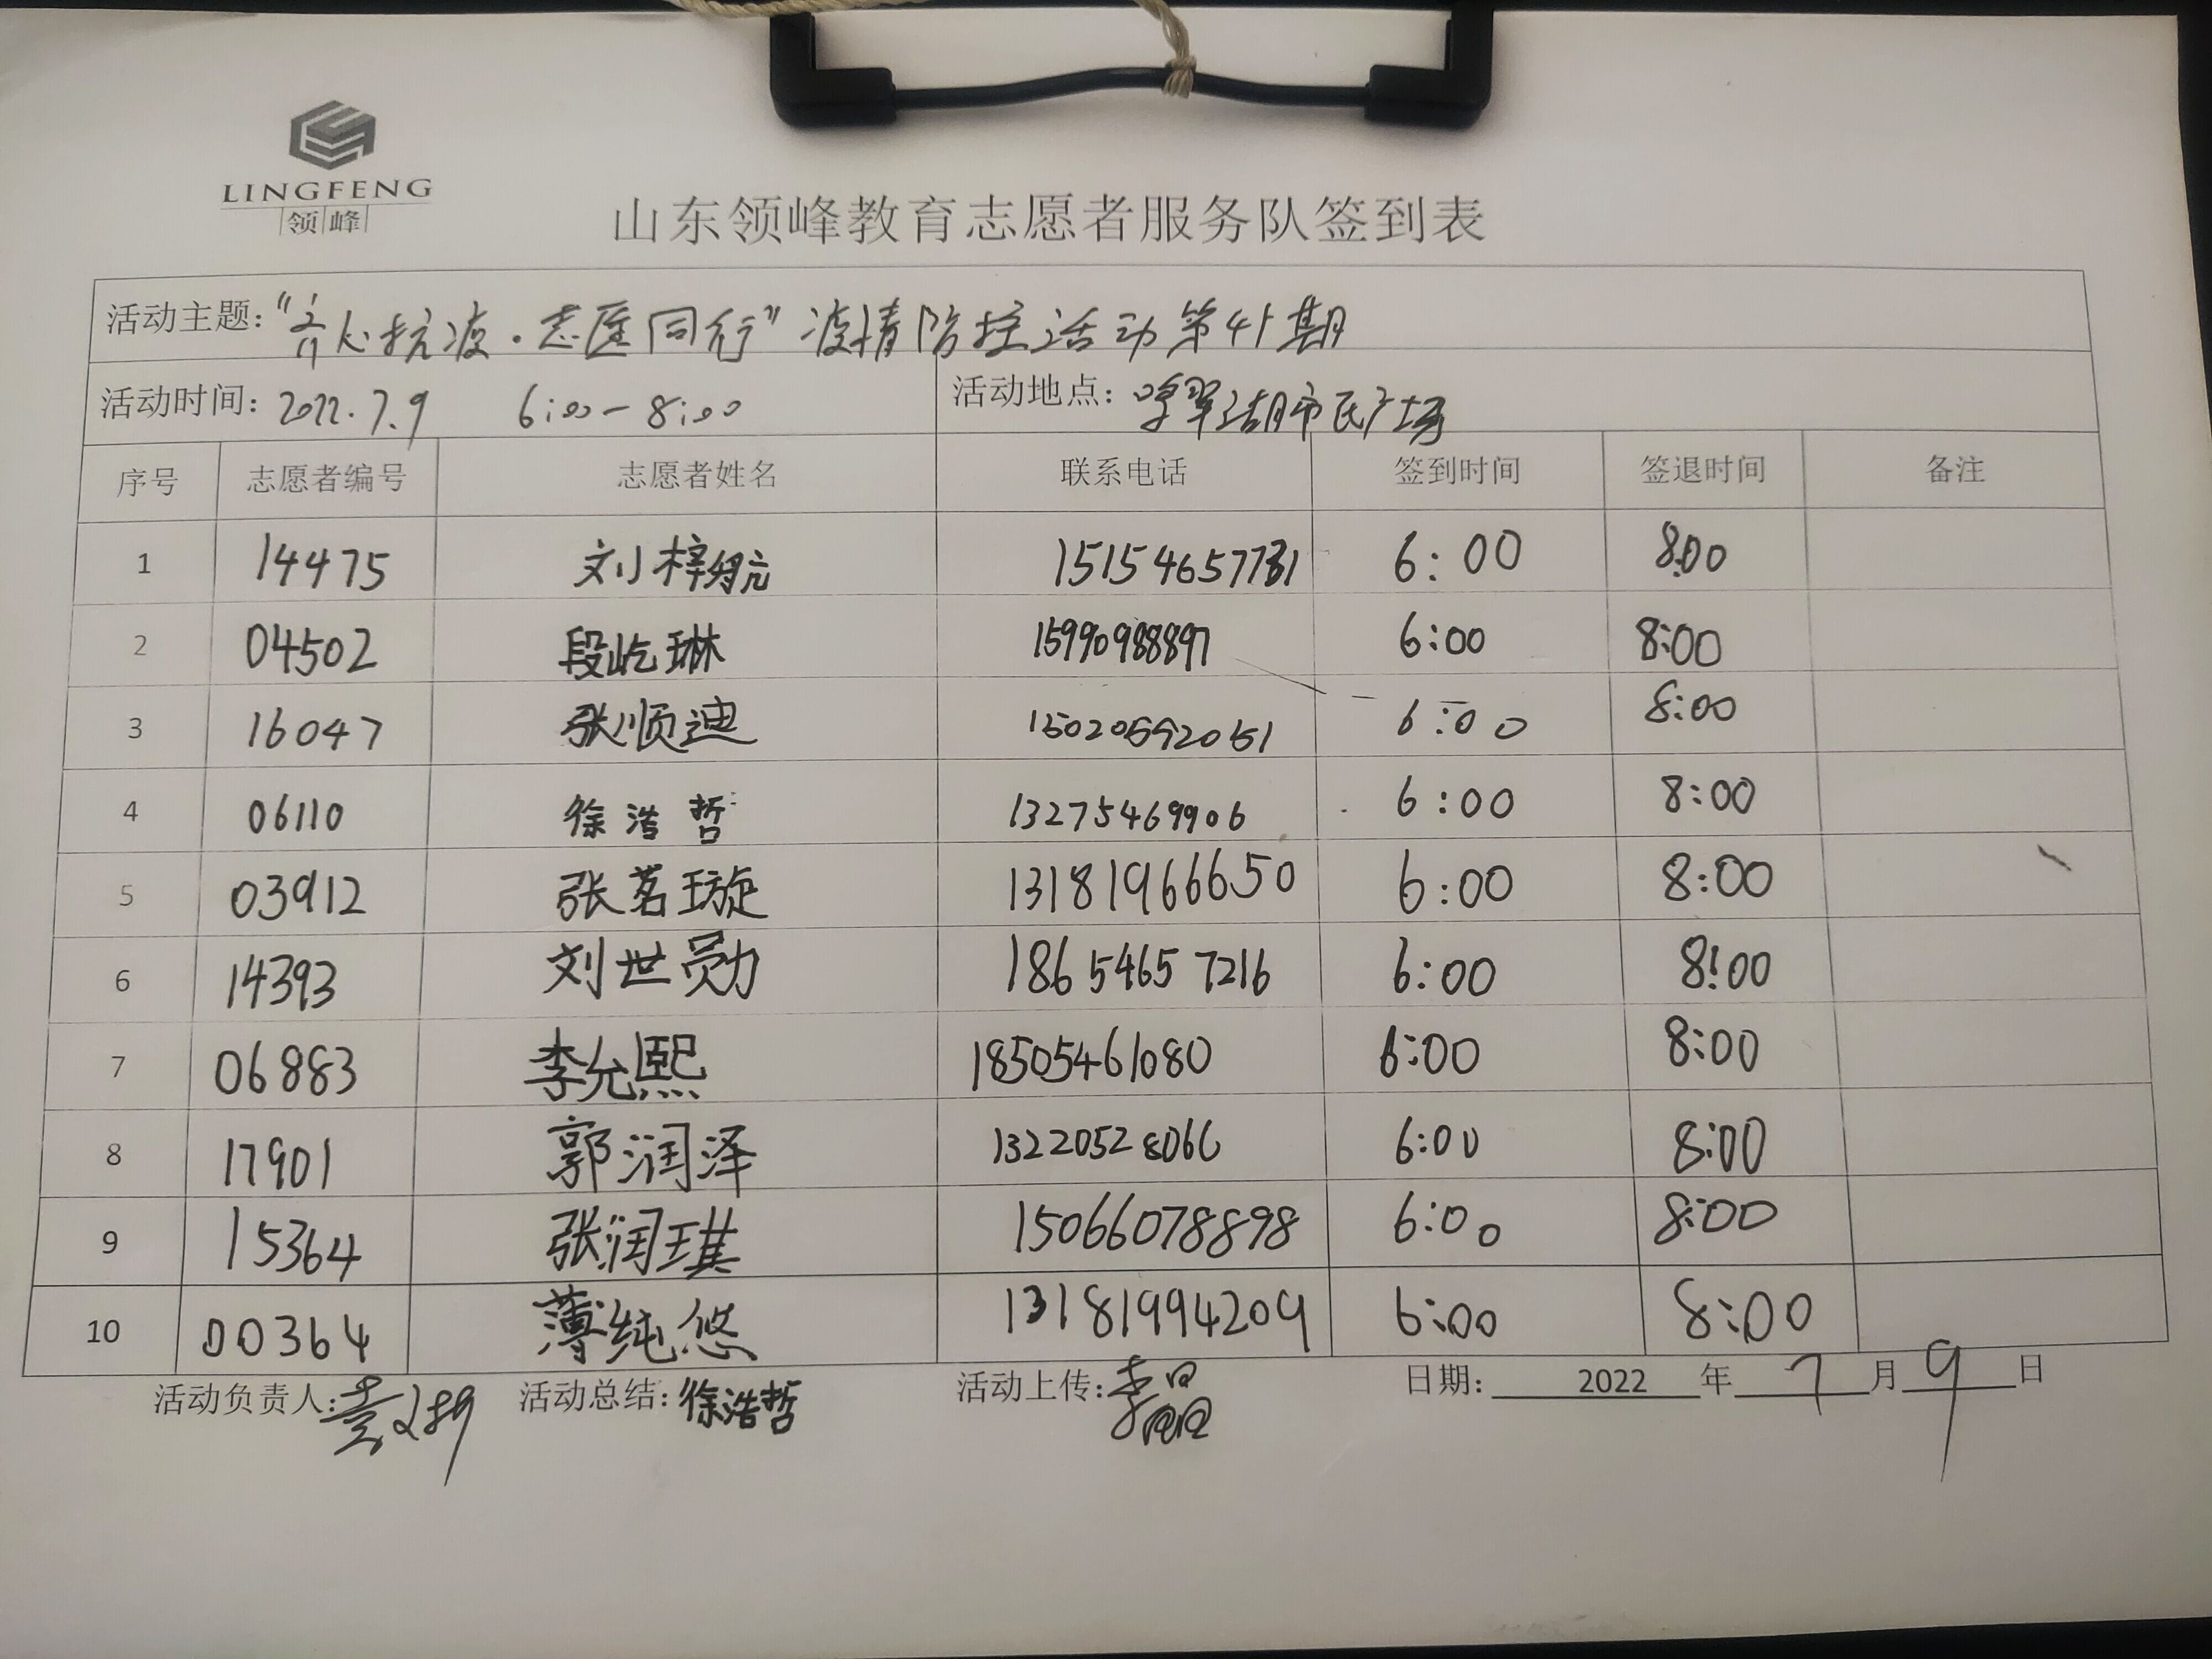 LINGFENG
领峰
山东领峰教育志愿者服务队签到表
活动主题：“齐心抗疫·志愿同行”疫情防控活动第41期
活动时间：2022.7.9 6:00—8:00 活动地点：鸣翠湖市民广场
序号 志愿者编号 志愿者姓名 联系电话 签到时间 签退时间 备注
1 14475 刘梓航 15154657731 6:00 8:00
2 04502 段屹琳 15990988897 6:00 8:00
3 16047 张顺迪 15020592051 6:00 8:00
4 06110 徐浩哲 13275469906 6:00 8:00
5 03912 张茗璇 13181966650 6:00 8:00
6 14393 刘世勋 18654657216 6:00 8:00
7 06883 李允熙 18505461080 6:00 8:00
8 17901 郭润泽 13220528066 6:00 8:00
9 15364 张润琪 15066078898 6:00 8:00
10 00364 薄纯悠 131819994209 6:00 8:00
活动负责人： 活动总结：徐浩哲 活动上传：李晶晶 日期：2022年7月9日